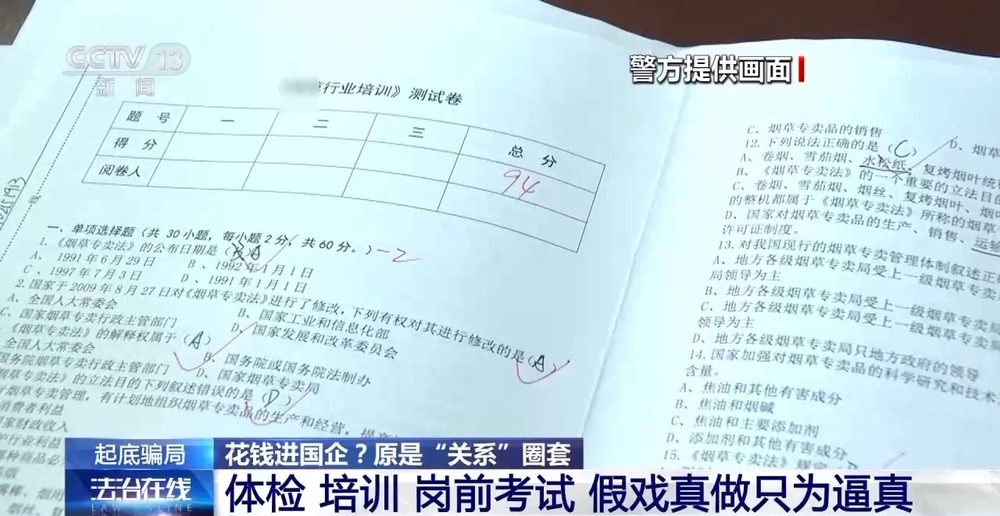 CCTV 13
新闻
警方提供画面
行业培训》测试卷
题号 一 二 三 总分
得分 94
阅卷人
线
一、单项选择题（共 30 小题，每小题 2 分，共 60 分。） -2
1.《烟草专卖法》的公布日期是（A）
A、1991 年 6 月 29 日 B、1992 年 1 月 1 日
C、1997 年 7 月 3 日 D、1991 年 1 月 1 日
2.国家于 2009 年 8 月 27 日对《烟草专卖法》进行了修改，下列有权对其进行修改的是（A）
A、全国人大常委会 B、国家工业和信息化部
C、国家烟草专卖行政主管部门 D、国家发展和改革委员会
《烟草专卖法》的解释权属于（A）
全国人大常委会 B、国务院或国务院法制办
国务院烟草专卖行政主管部门 D、国家烟草专卖局
草专卖法》的立法目的下列叙述错误的是（D）
行烟草专卖管理，有计划地组织烟草专卖品的生产和经营，
消费者利益
家财政收入
C、烟草专卖品的销售 D、烟草
12.下列说法正确的是（C）
A、卷烟、雪茄烟、水松纸、复烤烟叶统
B、《烟草专卖法》的一个重要的立法目的
C、卷烟、雪茄烟、烟丝、复烤烟叶、烟
的整机都属于《烟草专卖法》所称的烟草
D、国家对烟草专卖品的生产、销售、运输
许可证制度。
13.对我国现行的烟草专卖管理体制叙述正
A、地方各级烟草专卖局受上一级烟草专
局领导为主
B、地方各级烟草专卖局受上一级烟草专卖
C、地方各级烟草专卖局受上一级烟草专卖
领导为主
D、地方各级烟草专卖局只地方政府的领导
14.国家加强对烟草专卖品的科学研究和技术
含量。
A、焦油和其他有害成分
B、焦油和烟碱
C、焦油和主要添加剂
D、添加剂和其他有害成分
15.《烟草专卖法》规定
起底骗局 花钱进国企？原是“关系”圈套
法治在线 体检 培训 岗前考试 假戏真做只为逼真
LAW ONLINE